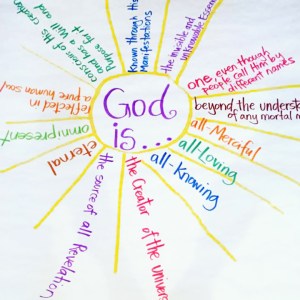 God
is...
known through His
Manifestations
the
and
Unknowable Essence
one, even though
people call Him by
different names
beyond the
of any mortal
all-Merciful
all-Loving
all-Knowing
the Creator of the
the source of all
eternal
omnipresent
reflected in
a pure human soul
conscious of His Creation
and has a Will and
Purpose for it